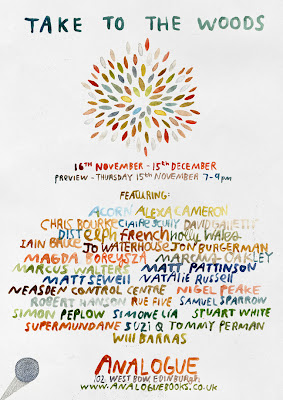 TAKE TO THE WOODS
16TH NOVEMBER - 15TH DECEMBER
PREVIEW - THURSDAY 15TH NOVEMBER 7-9pm
FEATURING:
ACORN ALEXA CAMERON
CHRIS BOURKE CLAIRE SCULLY DAVID GALLETTS
DIST ELPH FRENCH HOLLY WARD
IAIN BRUCE JO WATERHOUSE JON BURGERMAN
MAGDA BORYSZA MARCUS OAKLEY
MARCUS WALTERS MATT PATTINSON
MATT SEWELL NATALIE RUSSELL
NEASDEN CONTROL CENTRE NIGEL PEAKE
ROBERT HANSON RUE FIVE SAMUEL SPARROW
SIMON PEPLOW SIMONE LIA STUART WHITE
SUPERMUNDANE SUZI Q TOMMY PERMAN
WILL BARRAS
ANALOGUE
102 WEST BOW, EDINBURGH
WWW.ANALOGUEBOOKS.CO.UK